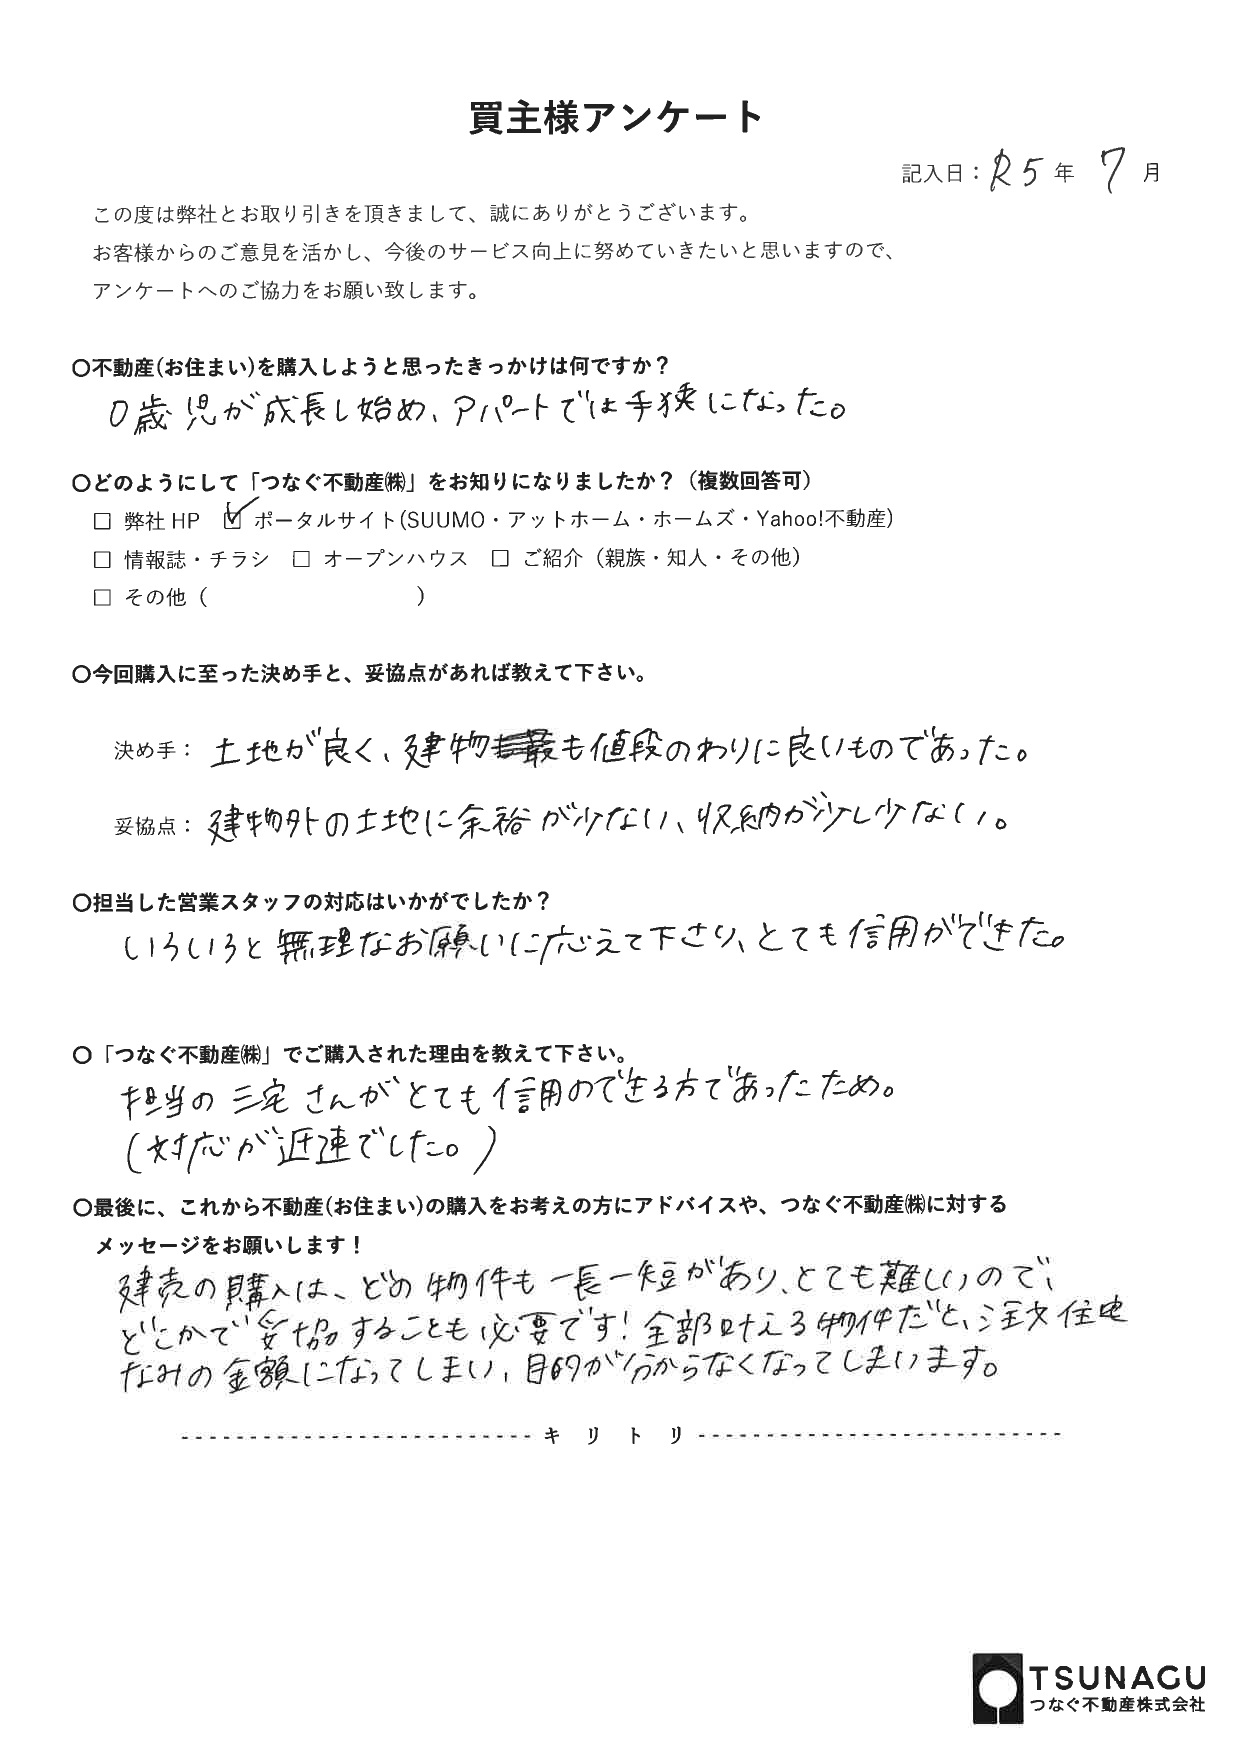 買主様アンケート
記入日：R5年 7月
この度は弊社とお取り引きを頂きまして、誠にありがとうございます。
お客様からのご意見を活かし、今後のサービス向上に努めていきたいと思いますので、
アンケートへのご協力をお願い致します。
〇不動産(お住まい)を購入しようと思ったきっかけは何ですか？
0歳児が成長し始め、アパートでは手狭になった。
〇どのようにして「つなぐ不動産㈱」をお知りになりましたか？（複数回答可）
□ 弊社 HP ☑ ポータルサイト(SUUMO・アットホーム・ホームズ・Yahoo!不動産)
□ 情報誌・チラシ □ オープンハウス □ ご紹介（親族・知人・その他）
□ その他（ ）
〇今回購入に至った決め手と、妥協点があれば教えて下さい。
決め手： 土地が良く、建物も値段のわりに良いものであった。
妥協点： 建物外の土地に余裕が少ない、収納が少し少ない。
〇担当した営業スタッフの対応はいかがでしたか？
いろいろと無理なお願いに応えて下さり、とても信用ができた。
〇「つなぐ不動産㈱」でご購入された理由を教えて下さい。
担当の三宅さんがとても信用のできる方であったため。
(対応が迅速でした。)
〇最後に、これから不動産(お住まい)の購入をお考えの方にアドバイスや、つなぐ不動産㈱に対する
メッセージをお願いします！
建売の購入は、どの物件も一長一短があり、とても難しいので、
どこかで妥協することも必要です！全部叶える物件だと、注文住宅
なみの金額になってしまい、目的が分からなくなってしまいます。
キ リ ト リ
TSUNAGU
つなぐ不動産株式会社